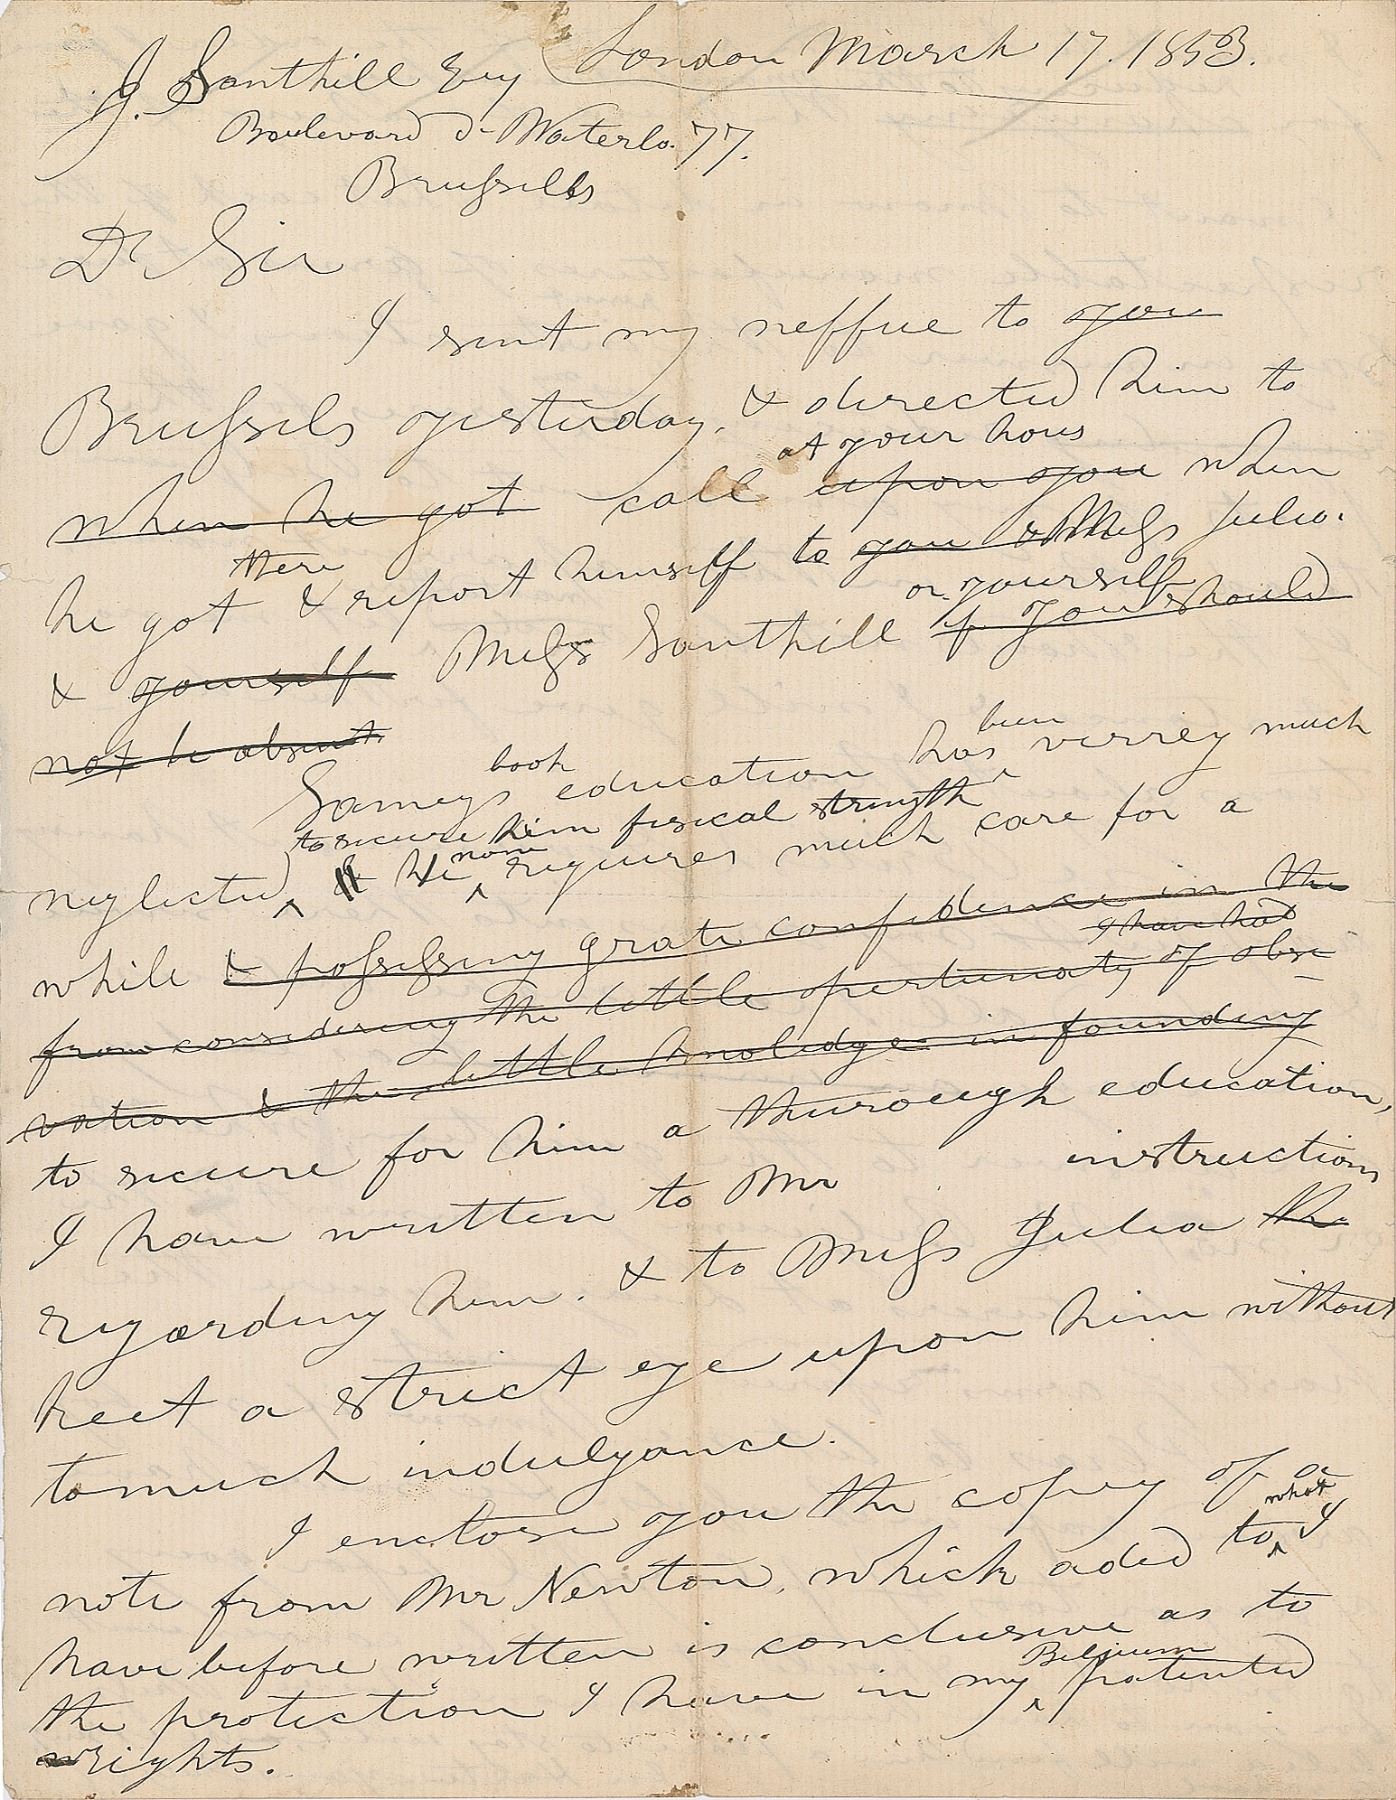 London March 17. 1853.
J. Santhill Esq
Boulevard d- Waterlo. 77.
Brussills
Dr Sir
I sent my neffue to you
Brussels yesterday, & directed him to
at your hous
when he got call upon you when
there
he got & report himself to you & Miss Julia.
or yourself
& yourself Miss Santhill if you should
not be absent
book been
Sameys education has verrey much
to secure him fisical strength
now
neglected, & he requires much care for a
while & possessing grate confidence in the
I have had
from considering the little opertunaty of obse
vation & the little knoledge in founding
to secure for him a thurough education,
I have written to Mr instructions
regarding him. & to Miss Julia the
keet a strict eye upon him without
to much indulgance.
I enclose you the copey of a
what
note from Mr Newton, which aded to I
have before written is conclusive as to
Belgium
the protection I have in my patented
wrights.